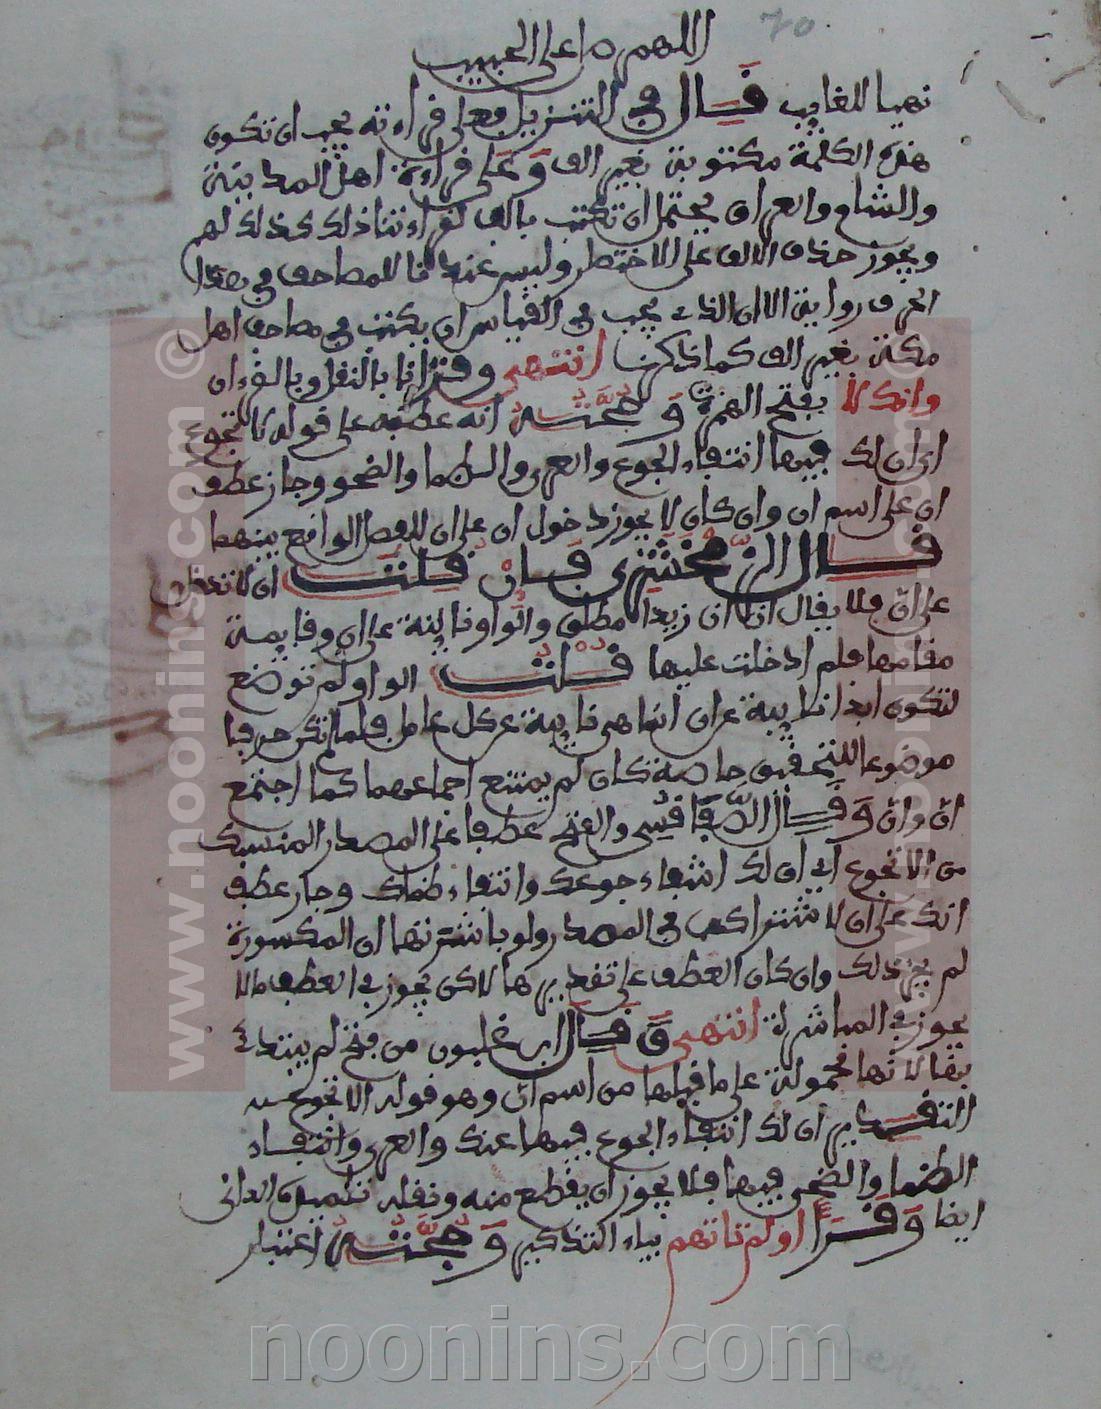 70
اللهم صل على الحبيب
نهيا للغايب قال في التنزيل فعلى قراءته يجب ان تكون
هذه الكلمة مكتوبة بغير الف وعلى قراءة اهل المدينة
والشام والعراق يحتمل ان تكتب بالف لقراءتنا ذلك كذلك لهم
ويجوز حذف الالف على الاختصار وليس عندنا للمصاحف في هذا
الحرف رواية الا ان الذي يجب في القياس ان يكتب في مصاحف اهل
مكة بغير الف كما ذكرنا انتهى وقرانا بالنقل وبالفرءان
وانك لا بفتح الهمزة وحجته انه عطفه على قوله الا تجوع
اي ان لك فيها انتفاء الجوع والعرى والظما والضحو وجاز عطف
ان على اسم ان وان كان لا يجوز دخول ان على ان للفصل الواقع بينهما
قال الزمخشري فان قلت ان لا تدخل
على ان فلا يقال ان ان زيدا منطلق والواو نايبة على ان وقايمة
مقامها فلم ادخلت عليها قلت الواو لم توضع
لتكون ابدا نايبة عن ان انما هي نايبة عن كل عامل فلما لم تكن حرفا
موضوعا للتحقيق خاصة كان لم يمتنع اجتماعهما كما اجتمع
ان وان وقال الصفاقسي والفتح عطفا على المصدر المنسبك
من الا تجوع اي ان لك انتفاء جوعك وانتفاء ظماك وجاز عطف
انك على ان لاشتراكهما في المصدر ولو باشرتها ان المكسورة
لم يجز ذلك وان كان العطف على تقديرها لاكن يجوز في العطف مالا
يجوز في المباشرة انتهى وقال ابن غلبون من فتح لم يبتدئ
بها لانها محمولة على ما قبلها من اسم ان وهو قوله الا تجوع
التقدير ان لك انتفاء الجوع فيها عنك والعرى وانتفاء
الظما والضحى فيها فلا يجوز ان يقطع منه ونقله تلميذه الداني
ايضا وقرا اولم تاتهم بياء التذكير وحجته اعتبار
www.noonins.com ©
www.noonins.com ©
noonins.com